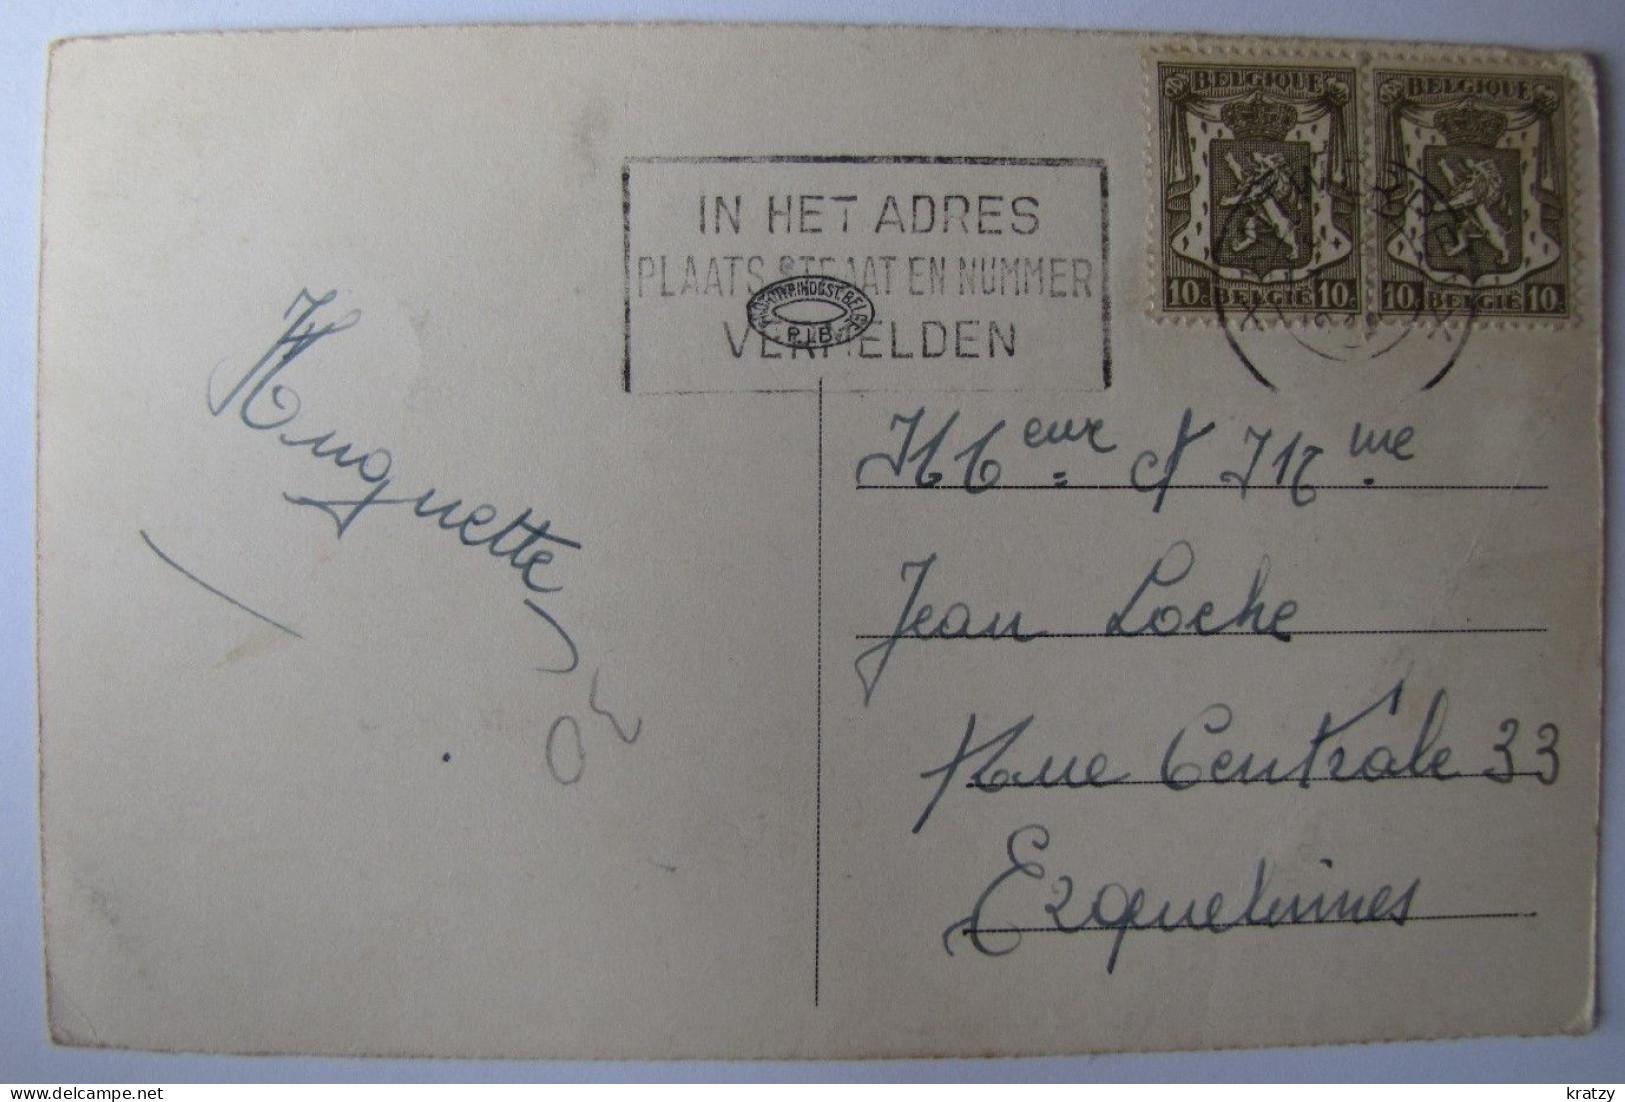 BELGIQUE BELGIQUE
10c BELGIË 10c 10c BELGIË 10c
IN HET ADRES
PLAATS STRAAT EN NUMMER
VERMELDEN
P.I.B.
Huguette
Meur & Mme
Jean Loche
Rue Centrale 33
Erquelinnes
kratzy